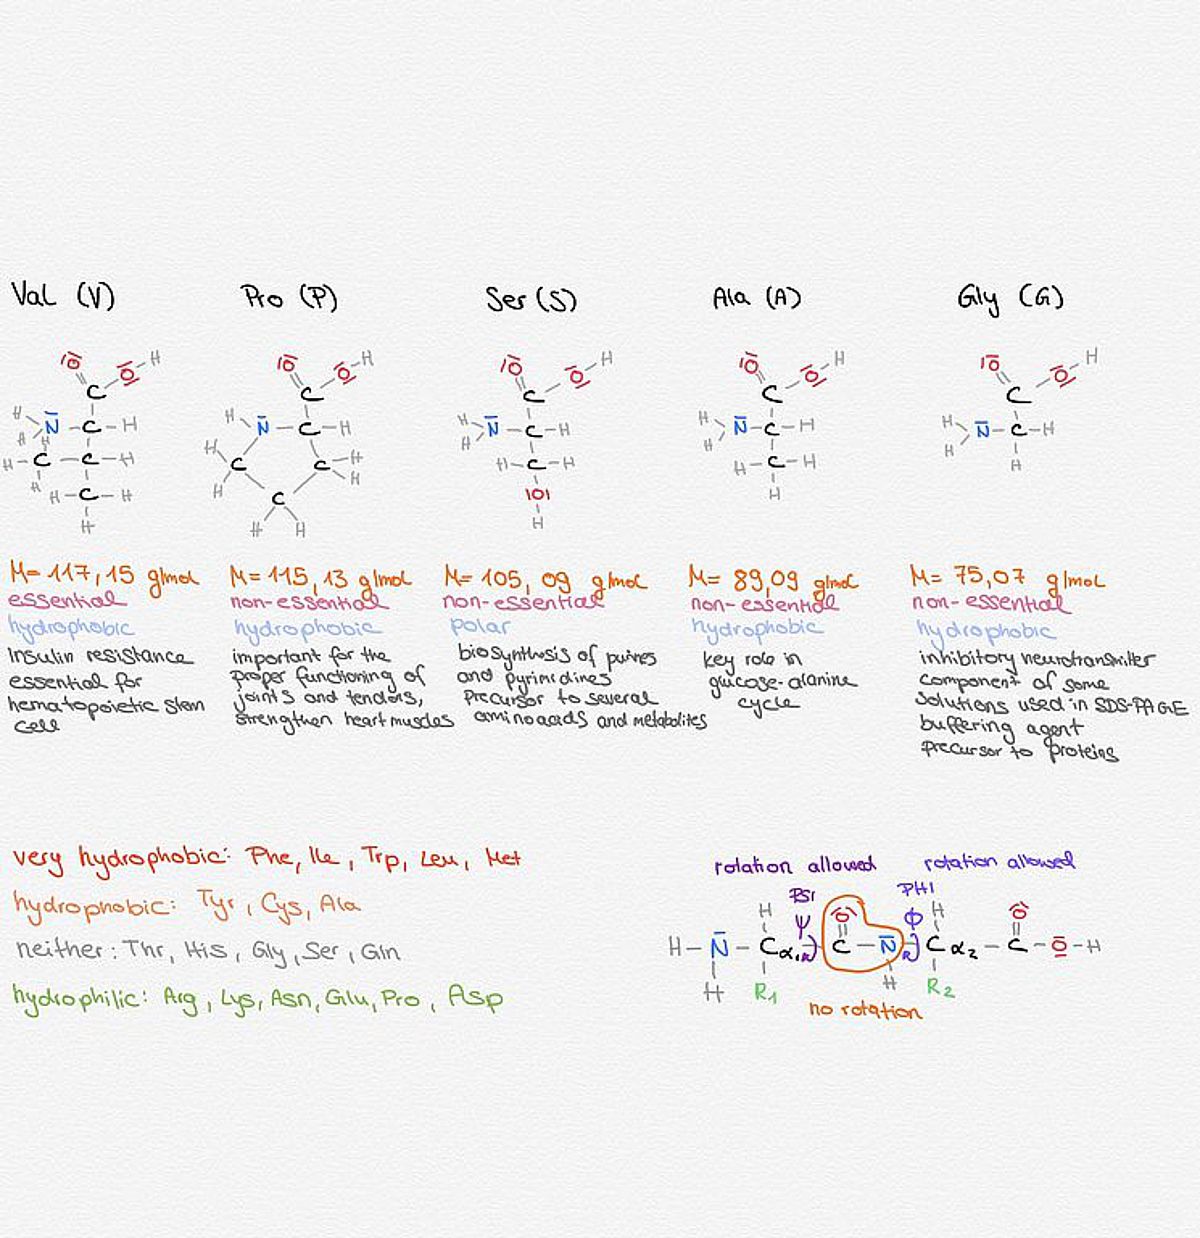 Val (V)
Pro (P)
Ser (S)
Ala (A)
Gly (G)
M= 117,15 g/mol
essential
hydrophobic
Insulin resistance
essential for
hematopoietic stem
cell
M= 115,13 g/mol
non-essential
hydrophobic
important for the
proper functioning of
joints and tendons,
strengthen heart muscles
M= 105,09 g/mol
non-essential
polar
biosynthesis of purines
and pyrimidines
precursor to several
aminoacids and metabolites
M= 89,09 g/mol
non-essential
hydrophobic
key role in
glucose-alanine
cycle
M= 75,07 g/mol
non-essential
hydrophobic
inhibitory neurotransmitter
component of some
solutions used in SDS-PAGE
buffering agent
precursor to proteins
very hydrophobic: Phe, Ile, Trp, Leu, Met
hydrophobic: Tyr, Cys, Ala
neither: Thr, His, Gly, Ser, Gln
hydrophilic: Arg, Lys, Asn, Glu, Pro, Asp
rotation allowed
rotation allowed
PSI
PHI
H Ψ O Φ H O
H-N-Cα,1 C-N Cα2-C-O-H
H R1 H R2
no rotation